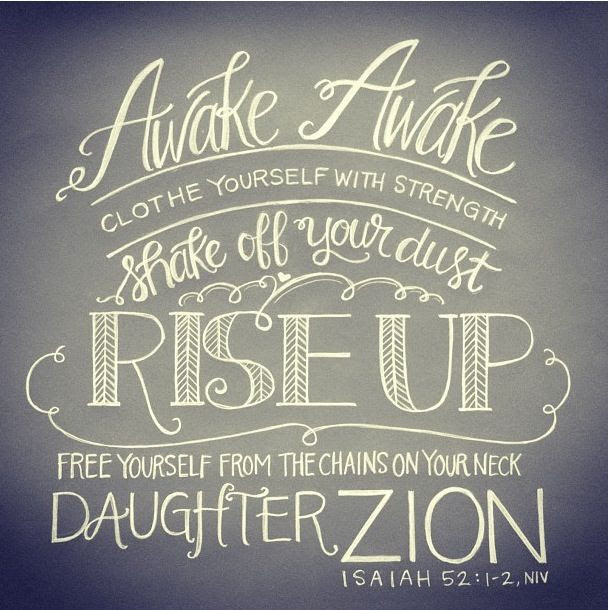 Awake Awake
CLOTHE YOURSELF WITH STRENGTH
shake off your dust
RISE UP
FREE YOURSELF FROM THE CHAINS ON YOUR NECK
DAUGHTER ZION
ISAIAH 52:1-2, NIV